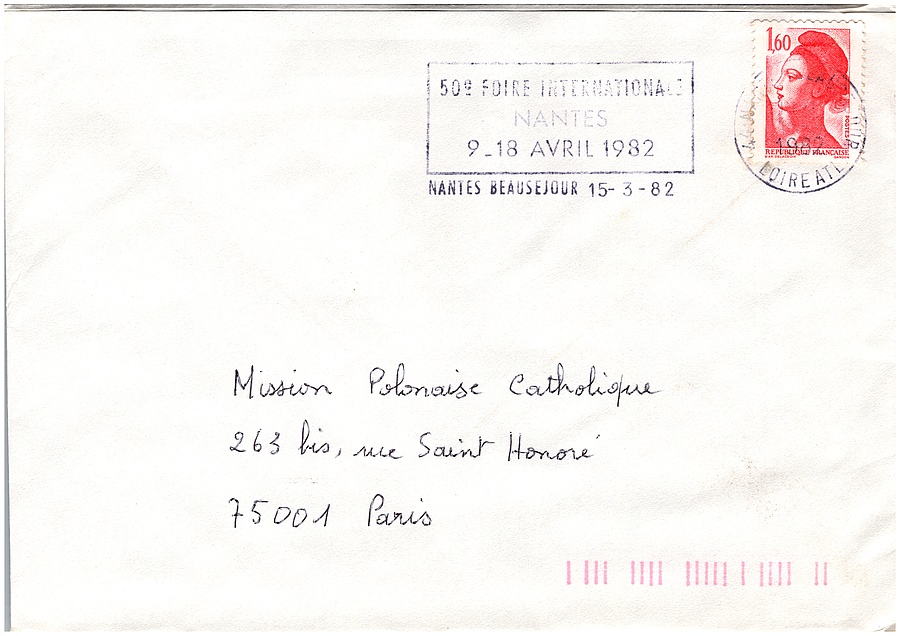 1,60
50e FOIRE INTERNATIONALE
NANTES
9_18 AVRIL 1982
NANTES BEAUSEJOUR 15-3-82
POSTES
1982
REPUBLIQUE FRANÇAISE
LOIRE ATL
Mission Polonaise Catholique
263 bis, rue Saint Honoré
75001 Paris